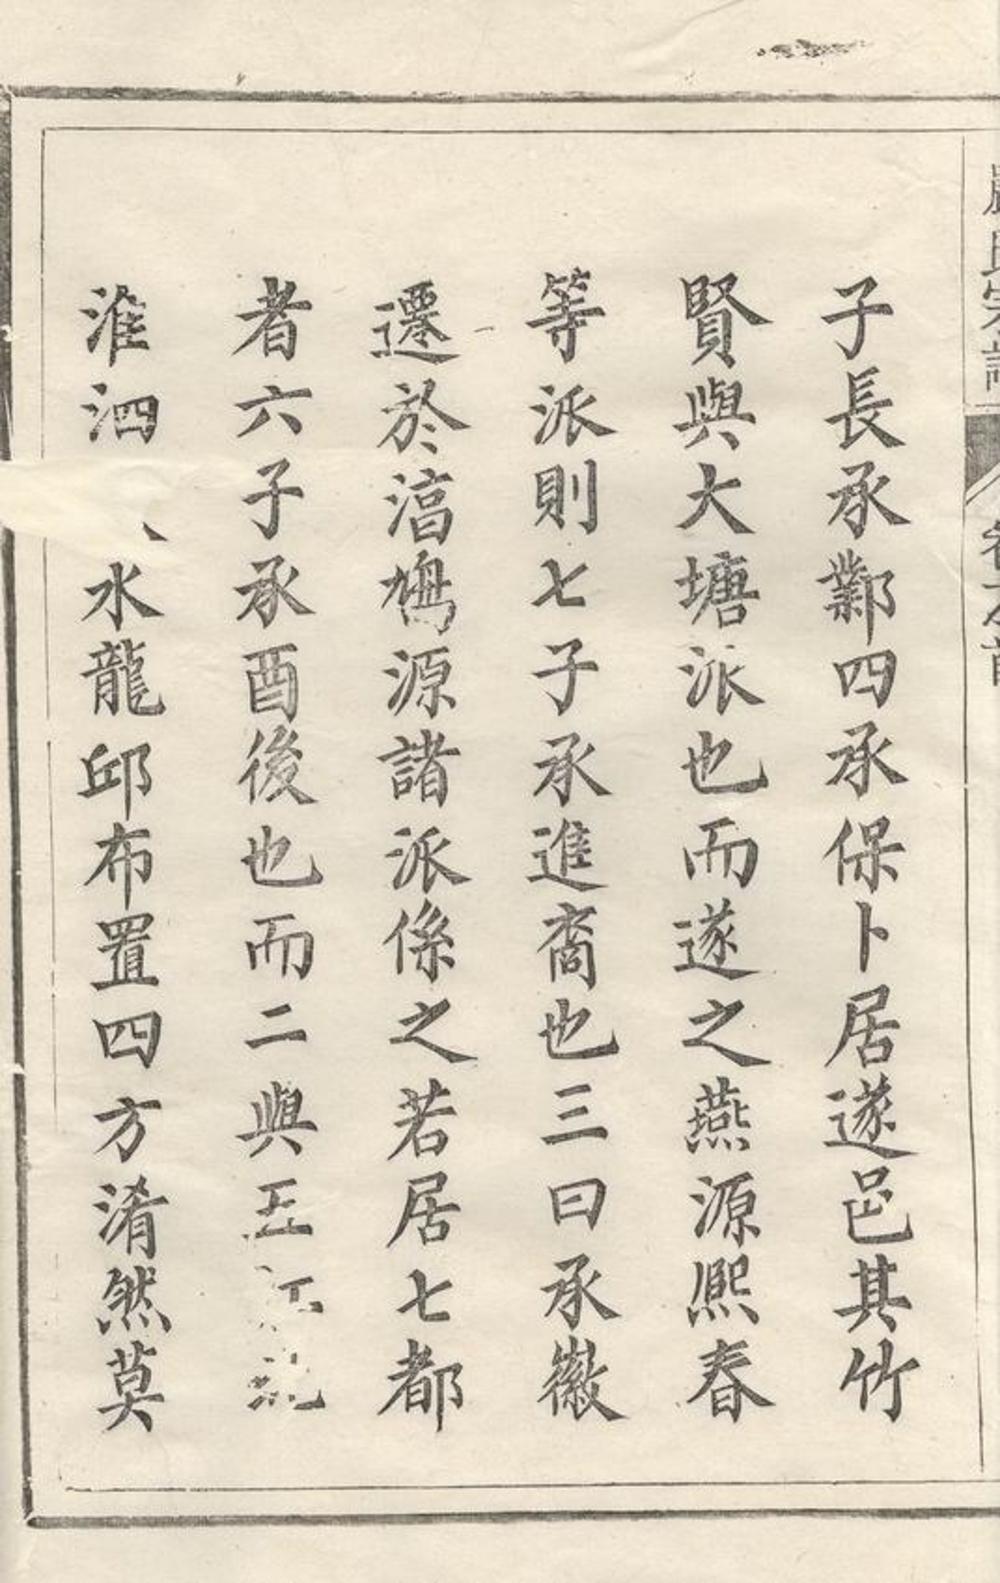 嚴氏宗譜 卷之首
子長承鄴四承保卜居遂邑其竹
賢與大塘派也而遂之燕源熙春
等派則七子承進裔也三曰承徽
遷於湻鳩源諸派係之若居七都
者六子承酉後也而二與五
淮泗 水龍邱布置四方淆然莫